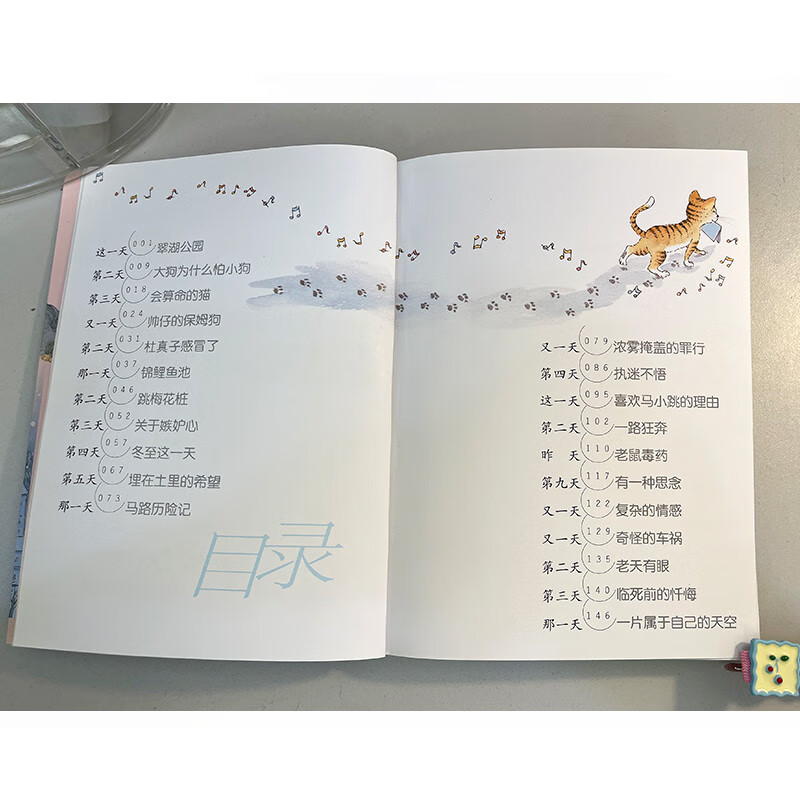 这一天 001 翠湖公园
第二天 009 大狗为什么怕小狗
第三天 018 会算命的猫
又一天 024 帅仔的保姆狗
第二天 031 杜真子感冒了
那一天 037 锦鲤鱼池
第二天 046 跳梅花桩
第三天 052 关于嫉妒心
第四天 057 冬至这一天
第五天 067 埋在土里的希望
那一天 073 马路历险记
目录
又一天 079 浓雾掩盖的罪行
第四天 086 执迷不悟
这一天 095 喜欢马小跳的理由
第二天 102 一路狂奔
昨天 110 老鼠毒药
第九天 117 有一种思念
又一天 122 复杂的情感
又一天 129 奇怪的车祸
第二天 135 老天有眼
第三天 140 临死前的忏悔
那一天 146 一片属于自己的天空